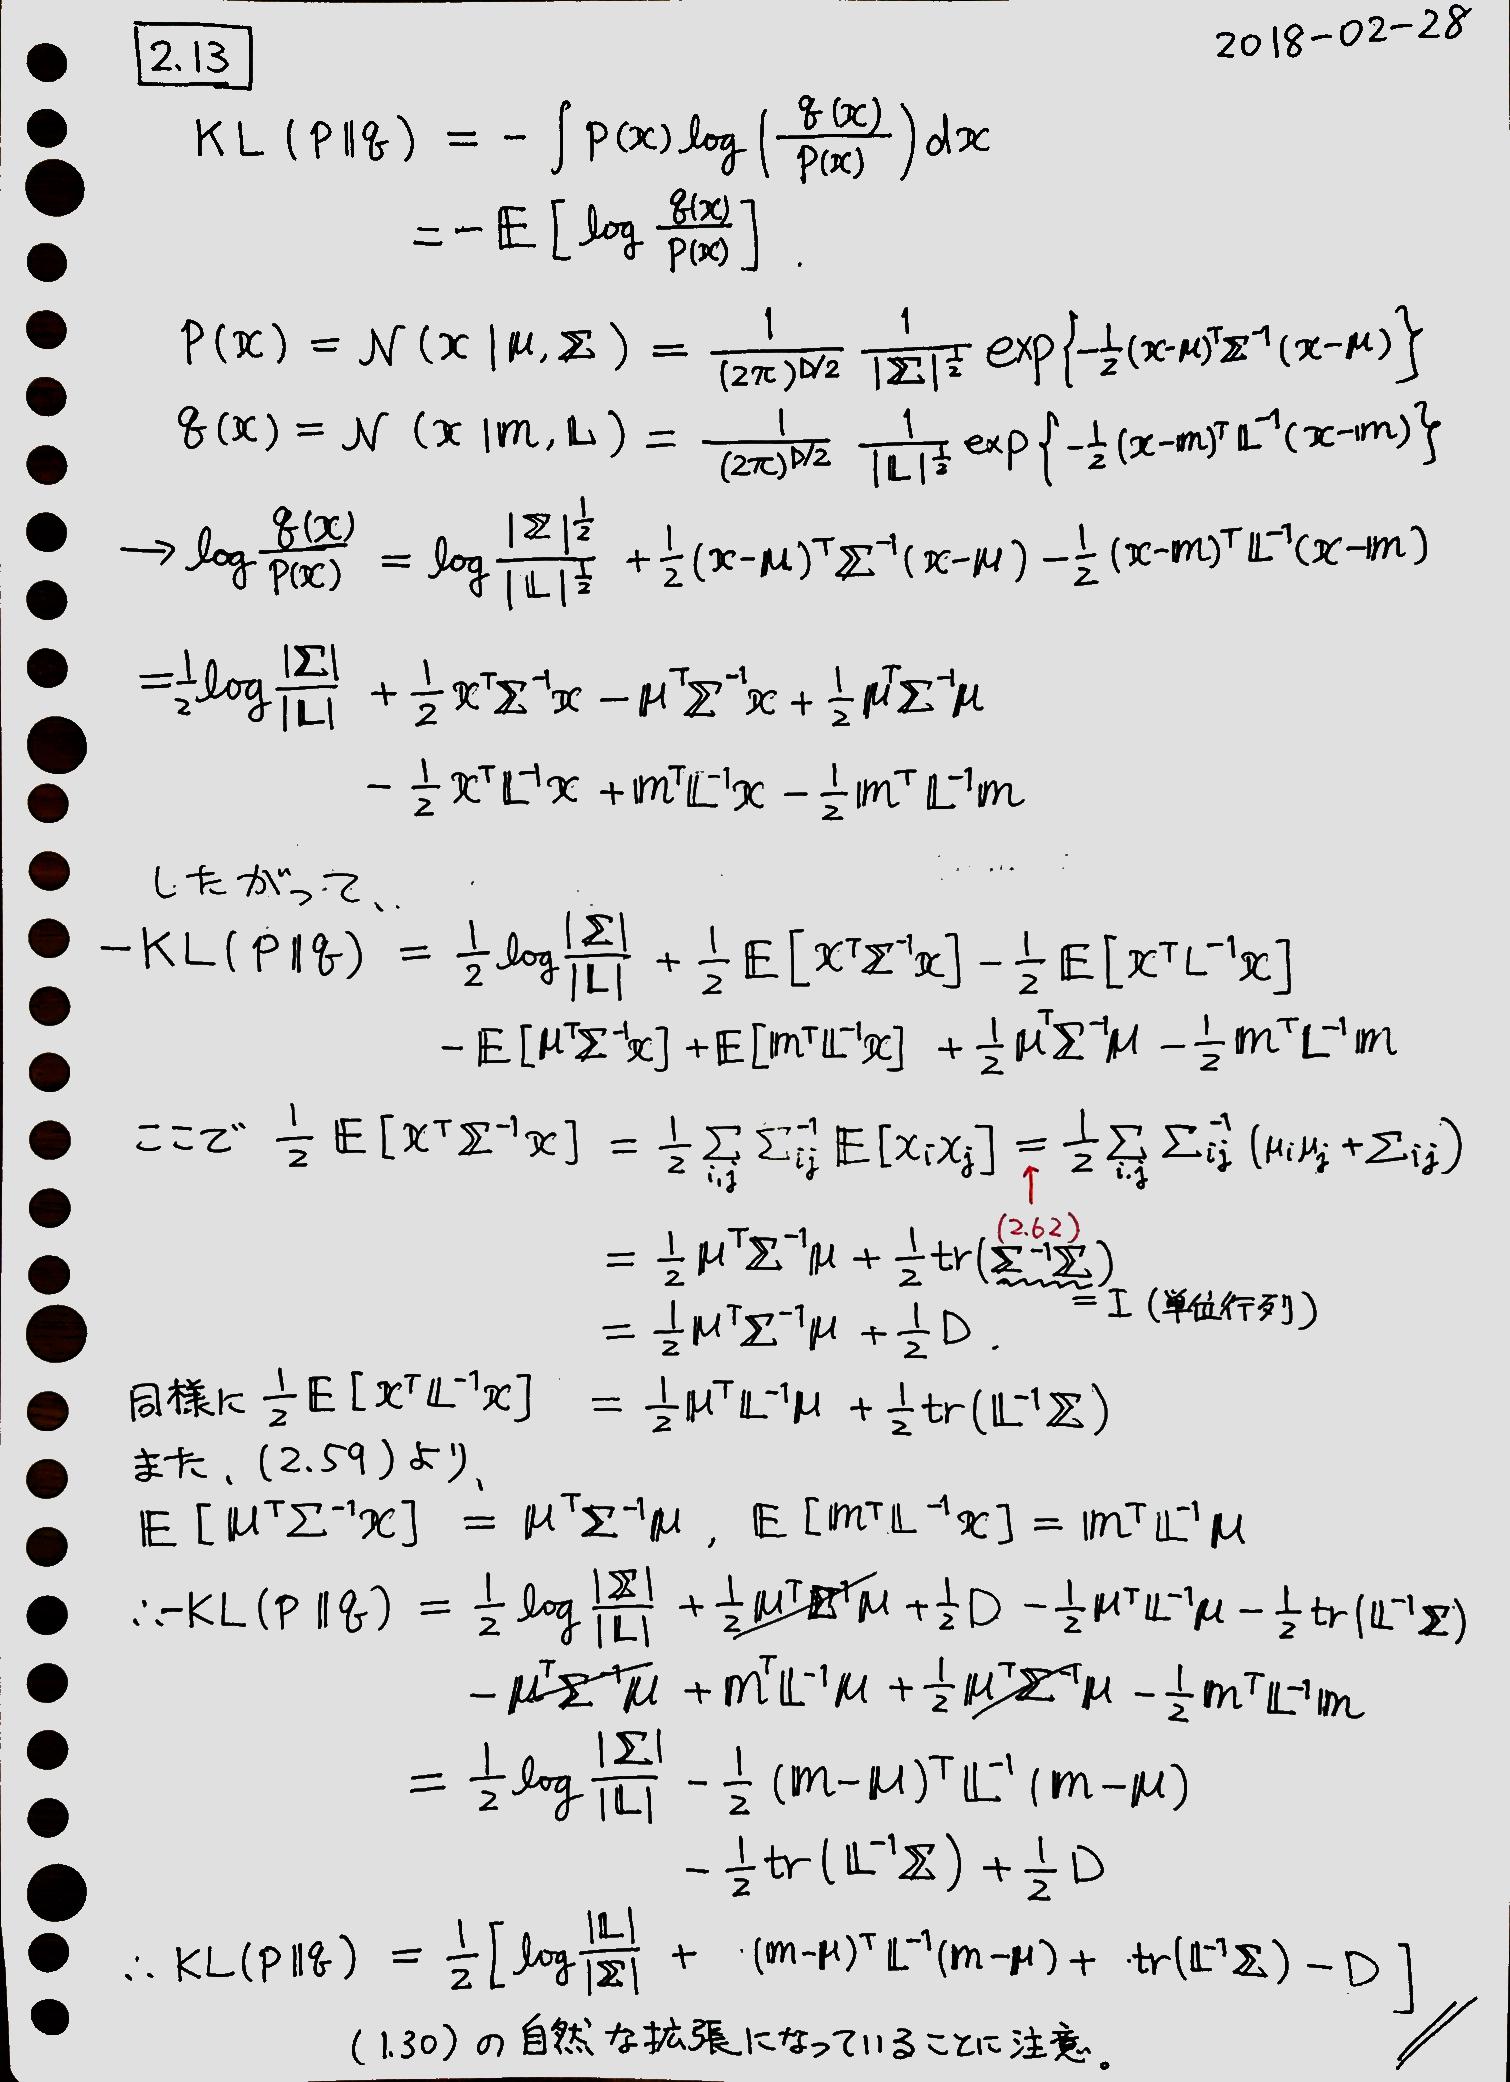 2.13 2018-02-28
KL(P||q) = - ∫ P(x) log ( q(x) / P(x) ) dx
= - 𝔼 [ log q(x) / P(x) ] .
P(x) = N(x | μ, Σ) = 1/(2π)^{D/2} 1/|Σ|^{1/2} exp{ -1/2 (x-μ)^T Σ^{-1} (x-μ) }
q(x) = N(x | m, L) = 1/(2π)^{D/2} 1/|L|^{1/2} exp{ -1/2 (x-m)^T L^{-1} (x-m) }
→ log q(x)/P(x) = log |Σ|^{1/2} / |L|^{1/2} + 1/2 (x-μ)^T Σ^{-1} (x-μ) - 1/2 (x-m)^T L^{-1} (x-m)
= 1/2 log |Σ|/|L| + 1/2 x^T Σ^{-1} x - μ^T Σ^{-1} x + 1/2 μ^T Σ^{-1} μ
- 1/2 x^T L^{-1} x + m^T L^{-1} x - 1/2 m^T L^{-1} m
したがって、
-KL(P||q) = 1/2 log |Σ|/|L| + 1/2 𝔼[x^T Σ^{-1} x] - 1/2 𝔼[x^T L^{-1} x]
- 𝔼[μ^T Σ^{-1} x] + 𝔼[m^T L^{-1} x] + 1/2 μ^T Σ^{-1} μ - 1/2 m^T L^{-1} m
ここで 1/2 𝔼[x^T Σ^{-1} x] = 1/2 Σ_{i,j} Σ^{-1}_{ij} 𝔼[x_i x_j] = 1/2 Σ_{i,j} Σ^{-1}_{ij} (μ_i μ_j + Σ_{ij})
↑
(2.62)
= 1/2 μ^T Σ^{-1} μ + 1/2 tr(Σ^{-1} Σ)
= I (単位行列)
= 1/2 μ^T Σ^{-1} μ + 1/2 D .
同様に 1/2 𝔼[x^T L^{-1} x] = 1/2 μ^T L^{-1} μ + 1/2 tr(L^{-1} Σ)
また、(2.59)より、
𝔼[μ^T Σ^{-1} x] = μ^T Σ^{-1} μ , 𝔼[m^T L^{-1} x] = m^T L^{-1} μ
∴ -KL(P||q) = 1/2 log |Σ|/|L| + 1/2 μ^T Σ^{-1} μ + 1/2 D - 1/2 μ^T L^{-1} μ - 1/2 tr(L^{-1} Σ)
- μ^T Σ^{-1} μ + m^T L^{-1} μ + 1/2 μ^T Σ^{-1} μ - 1/2 m^T L^{-1} m
= 1/2 log |Σ|/|L| - 1/2 (m-μ)^T L^{-1} (m-μ)
- 1/2 tr(L^{-1} Σ) + 1/2 D
∴ KL(P||q) = 1/2 [ log |L|/|Σ| + (m-μ)^T L^{-1} (m-μ) + tr(L^{-1} Σ) - D ]
(1.30)の自然な拡張になっていることに注意。 //